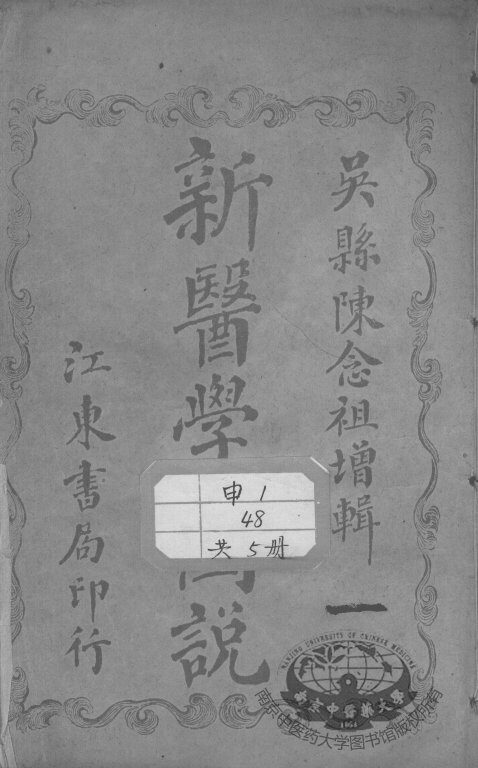 吳縣陳念祖增輯
一
新醫學圖說
江東書局印行
申1
48
共5册
NANJING UNIVERSITY OF CHINESE MEDICINE
南京中醫藥大學
1954
南京中医药大学图书馆版权所有